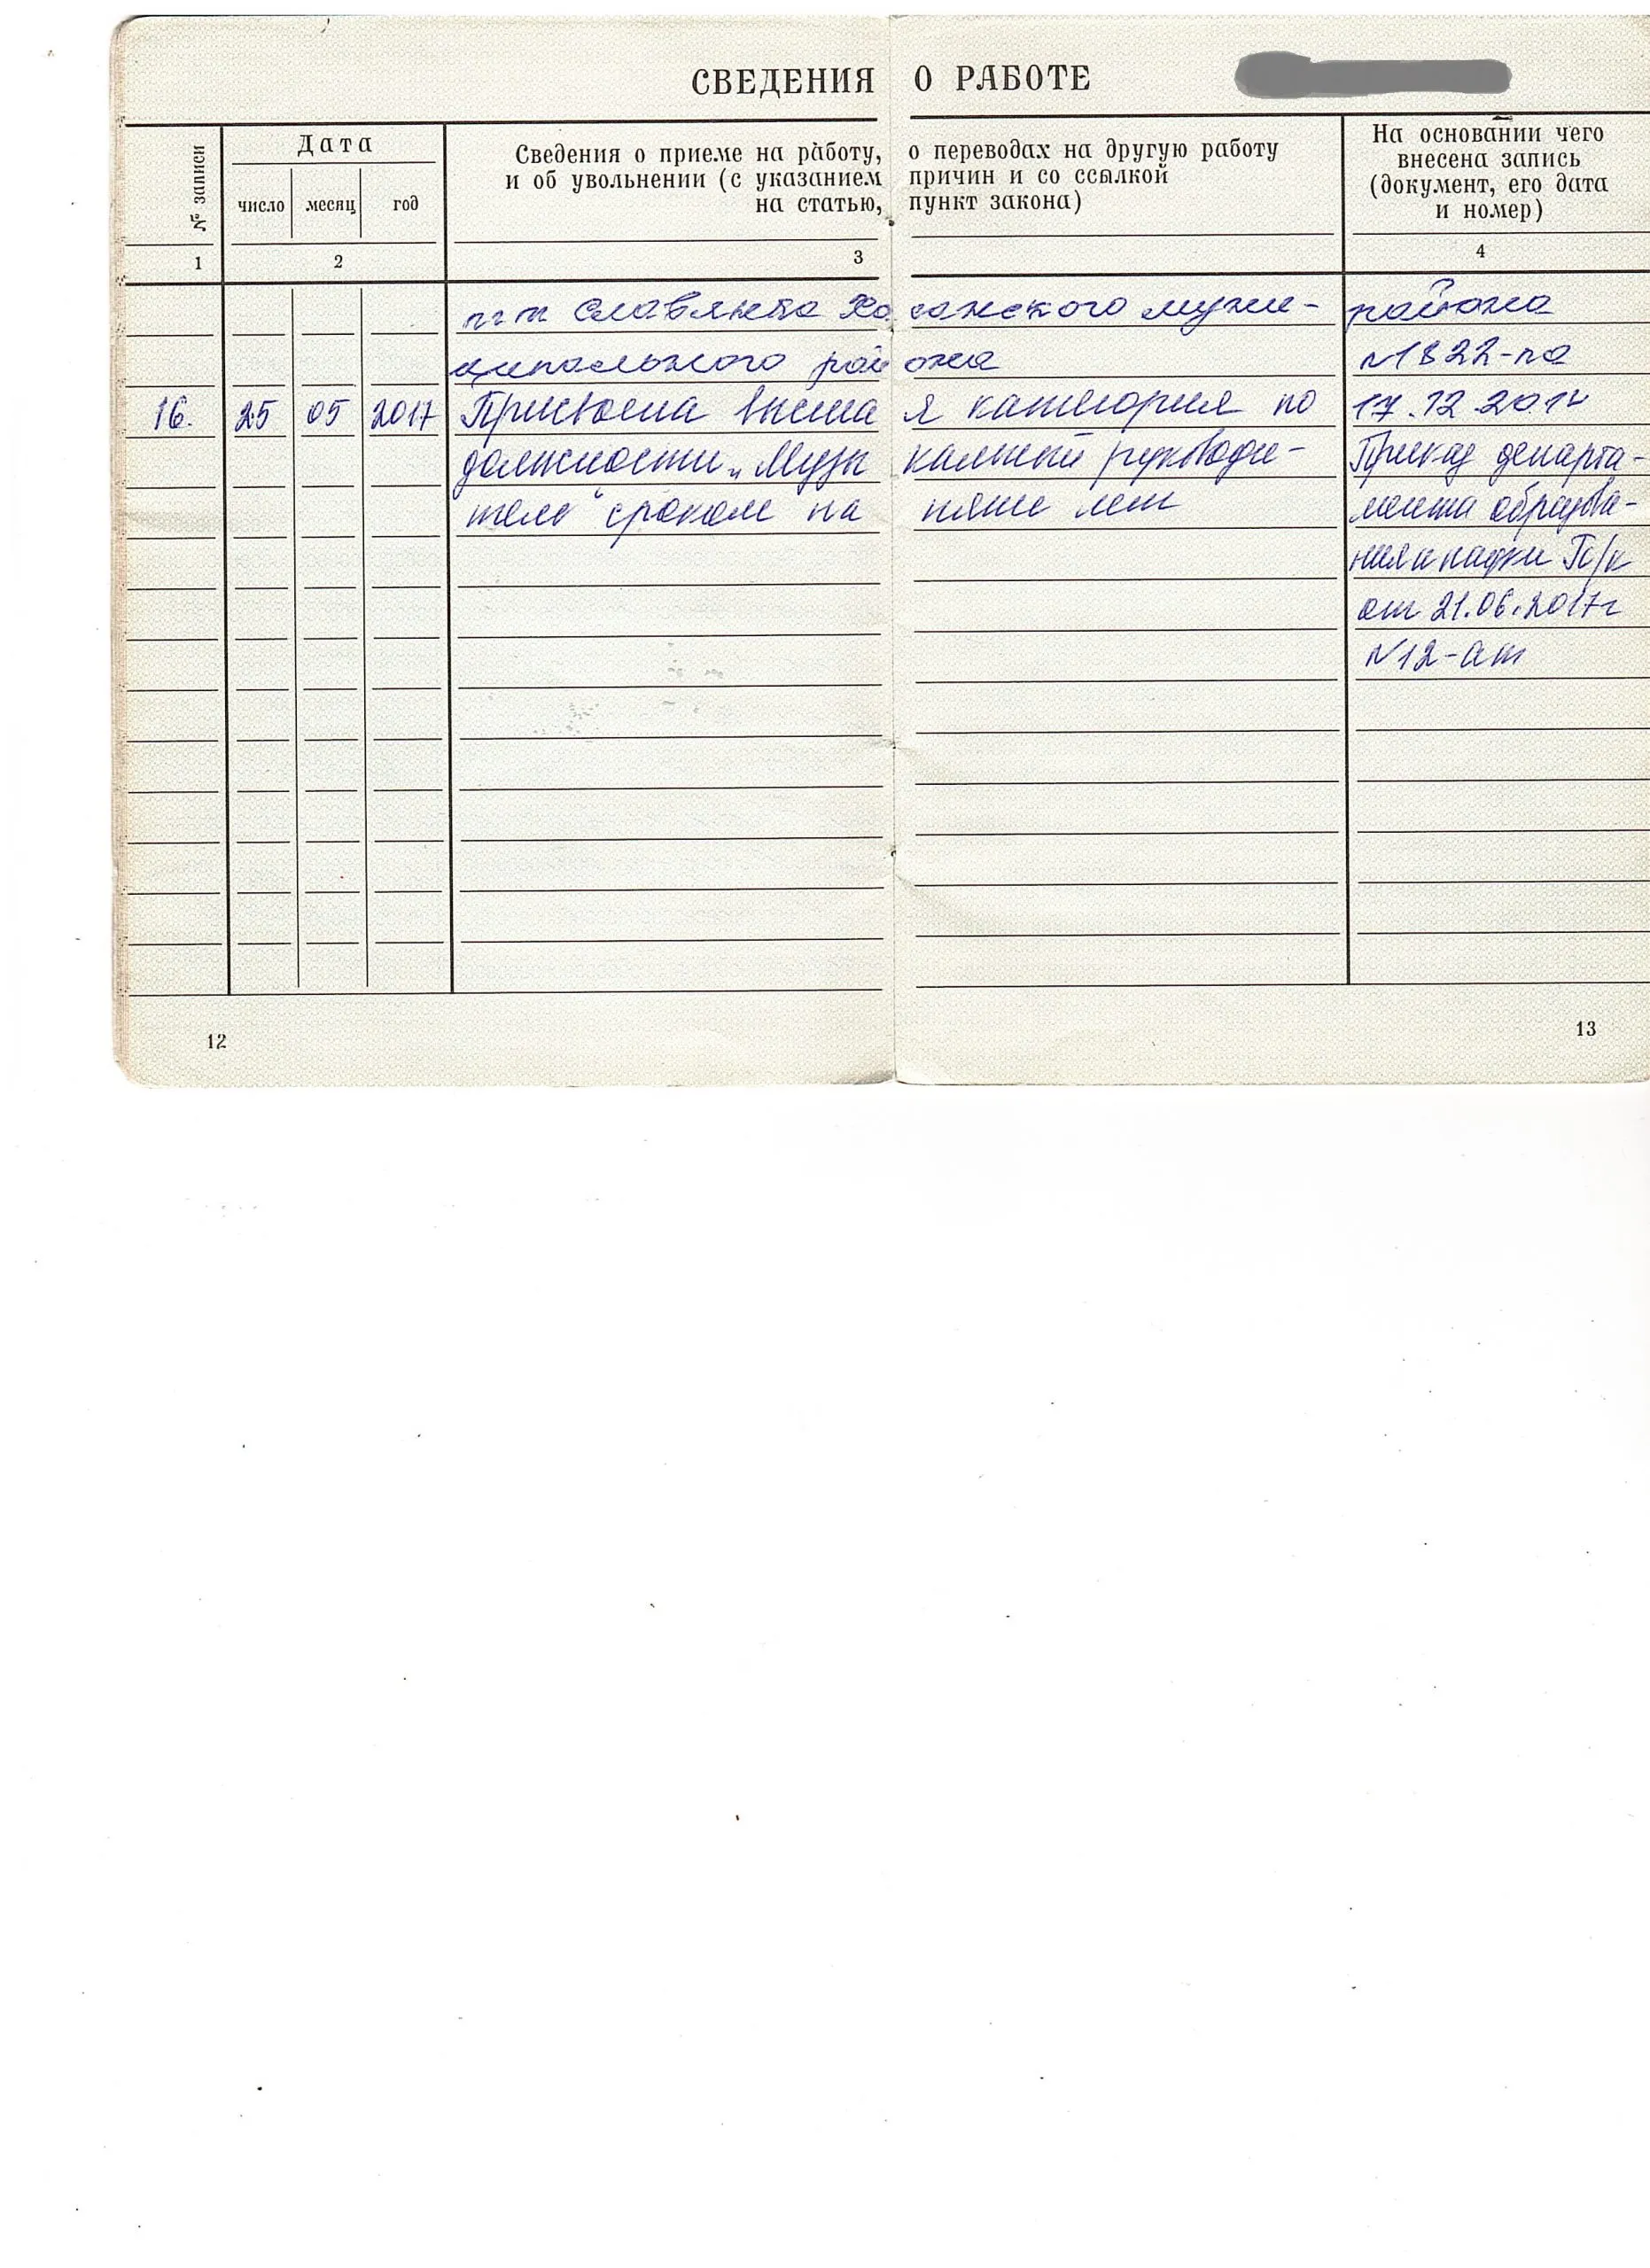 СВЕДЕНИЯ О РАБОТЕ
№ записи
Дата
число месяц год
Сведения о приеме на работу, о переводах на другую работу
и об увольнении (с указанием причин и со ссылкой
на статью, пункт закона)
На основании чего
внесена запись
(документ, его дата
и номер)
1 2 3 4
пгт Славянка Хасанского муни- района
ципального района №1822-па
16. 25 05 2017 Присвоена высшая категория по 17.12.2014
должности „Музыкальный руководи- Приказ департа-
тель" сроком на пять лет мента образова-
ния и науки П/к
от 21.06.2017г
№12-ат
12 13